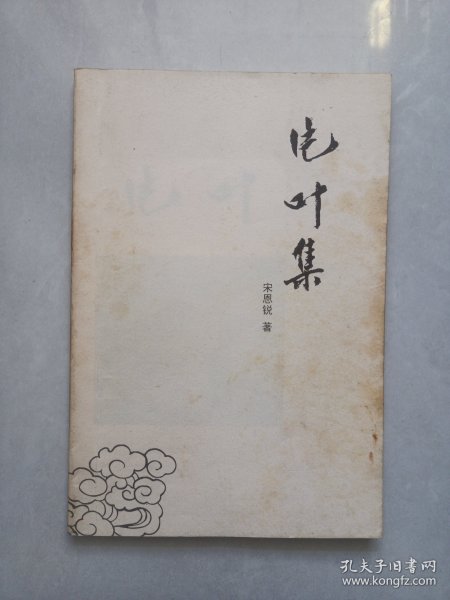 叶集
宋恩锐 著
孔夫子旧书网
www.kongfz.com